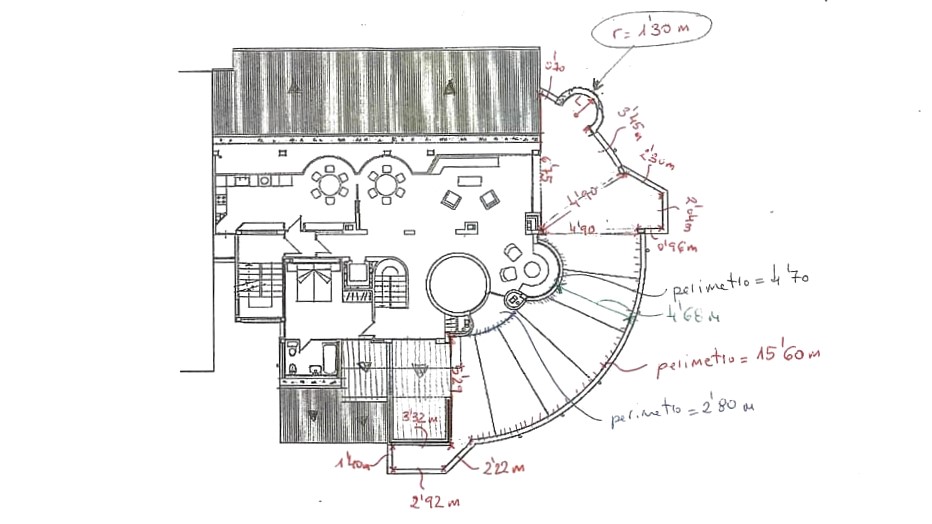 r = 1'30 m
0'70
3'45 m
2'30 m
6'75
4'90
2'04 m
4'90
0'96 m
perimetro = 4'70
4'68 m
perimetro = 15'60 m
5'29
perimetro = 2'80 m
3'32 m
1'40 m
2'22 m
2'92 m